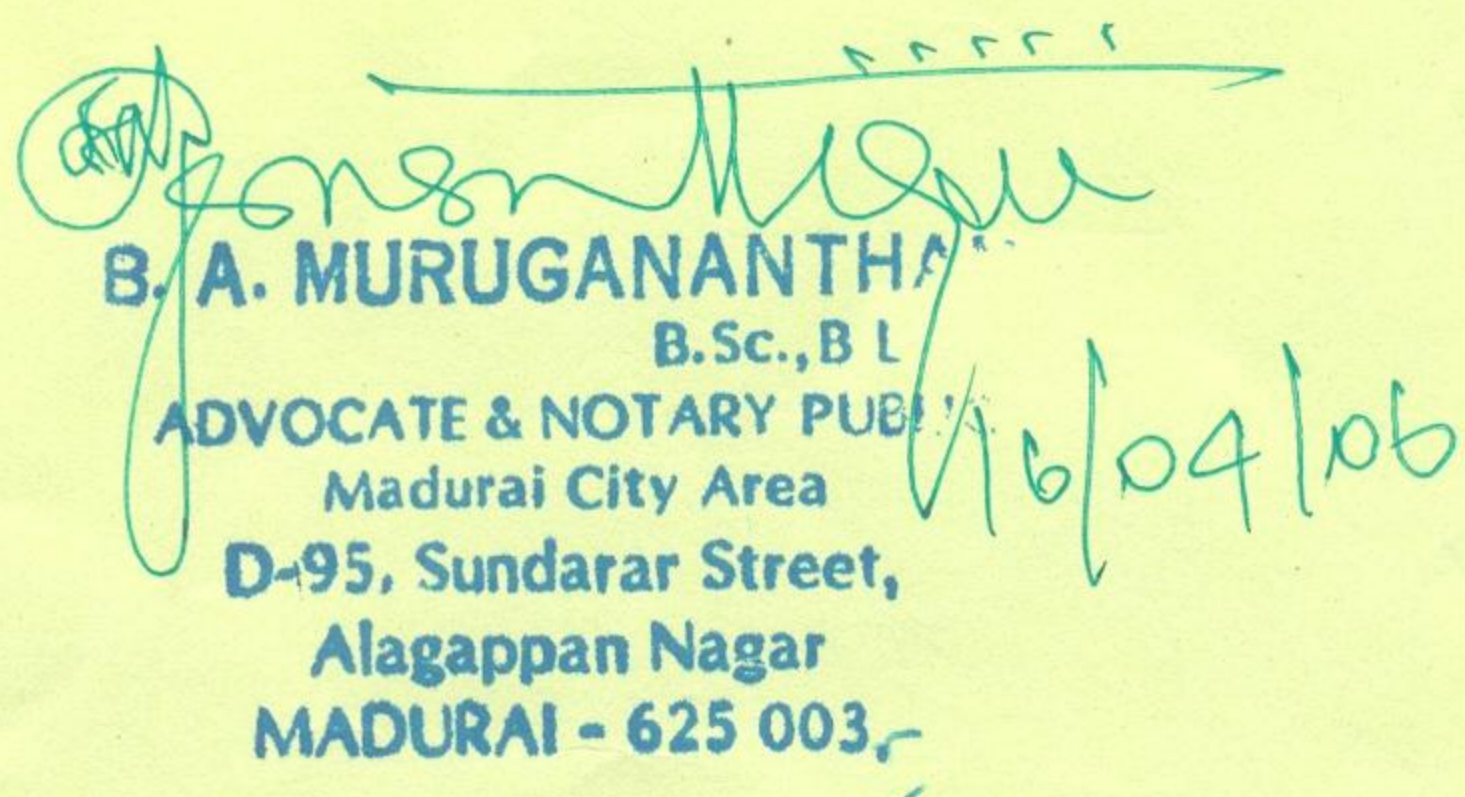 B. A. MURUGANANTHA
B.Sc., B L
ADVOCATE & NOTARY PUBLIC
16/04/06
Madurai City Area
D-95, Sundarar Street,
Alagappan Nagar
MADURAI - 625 003,